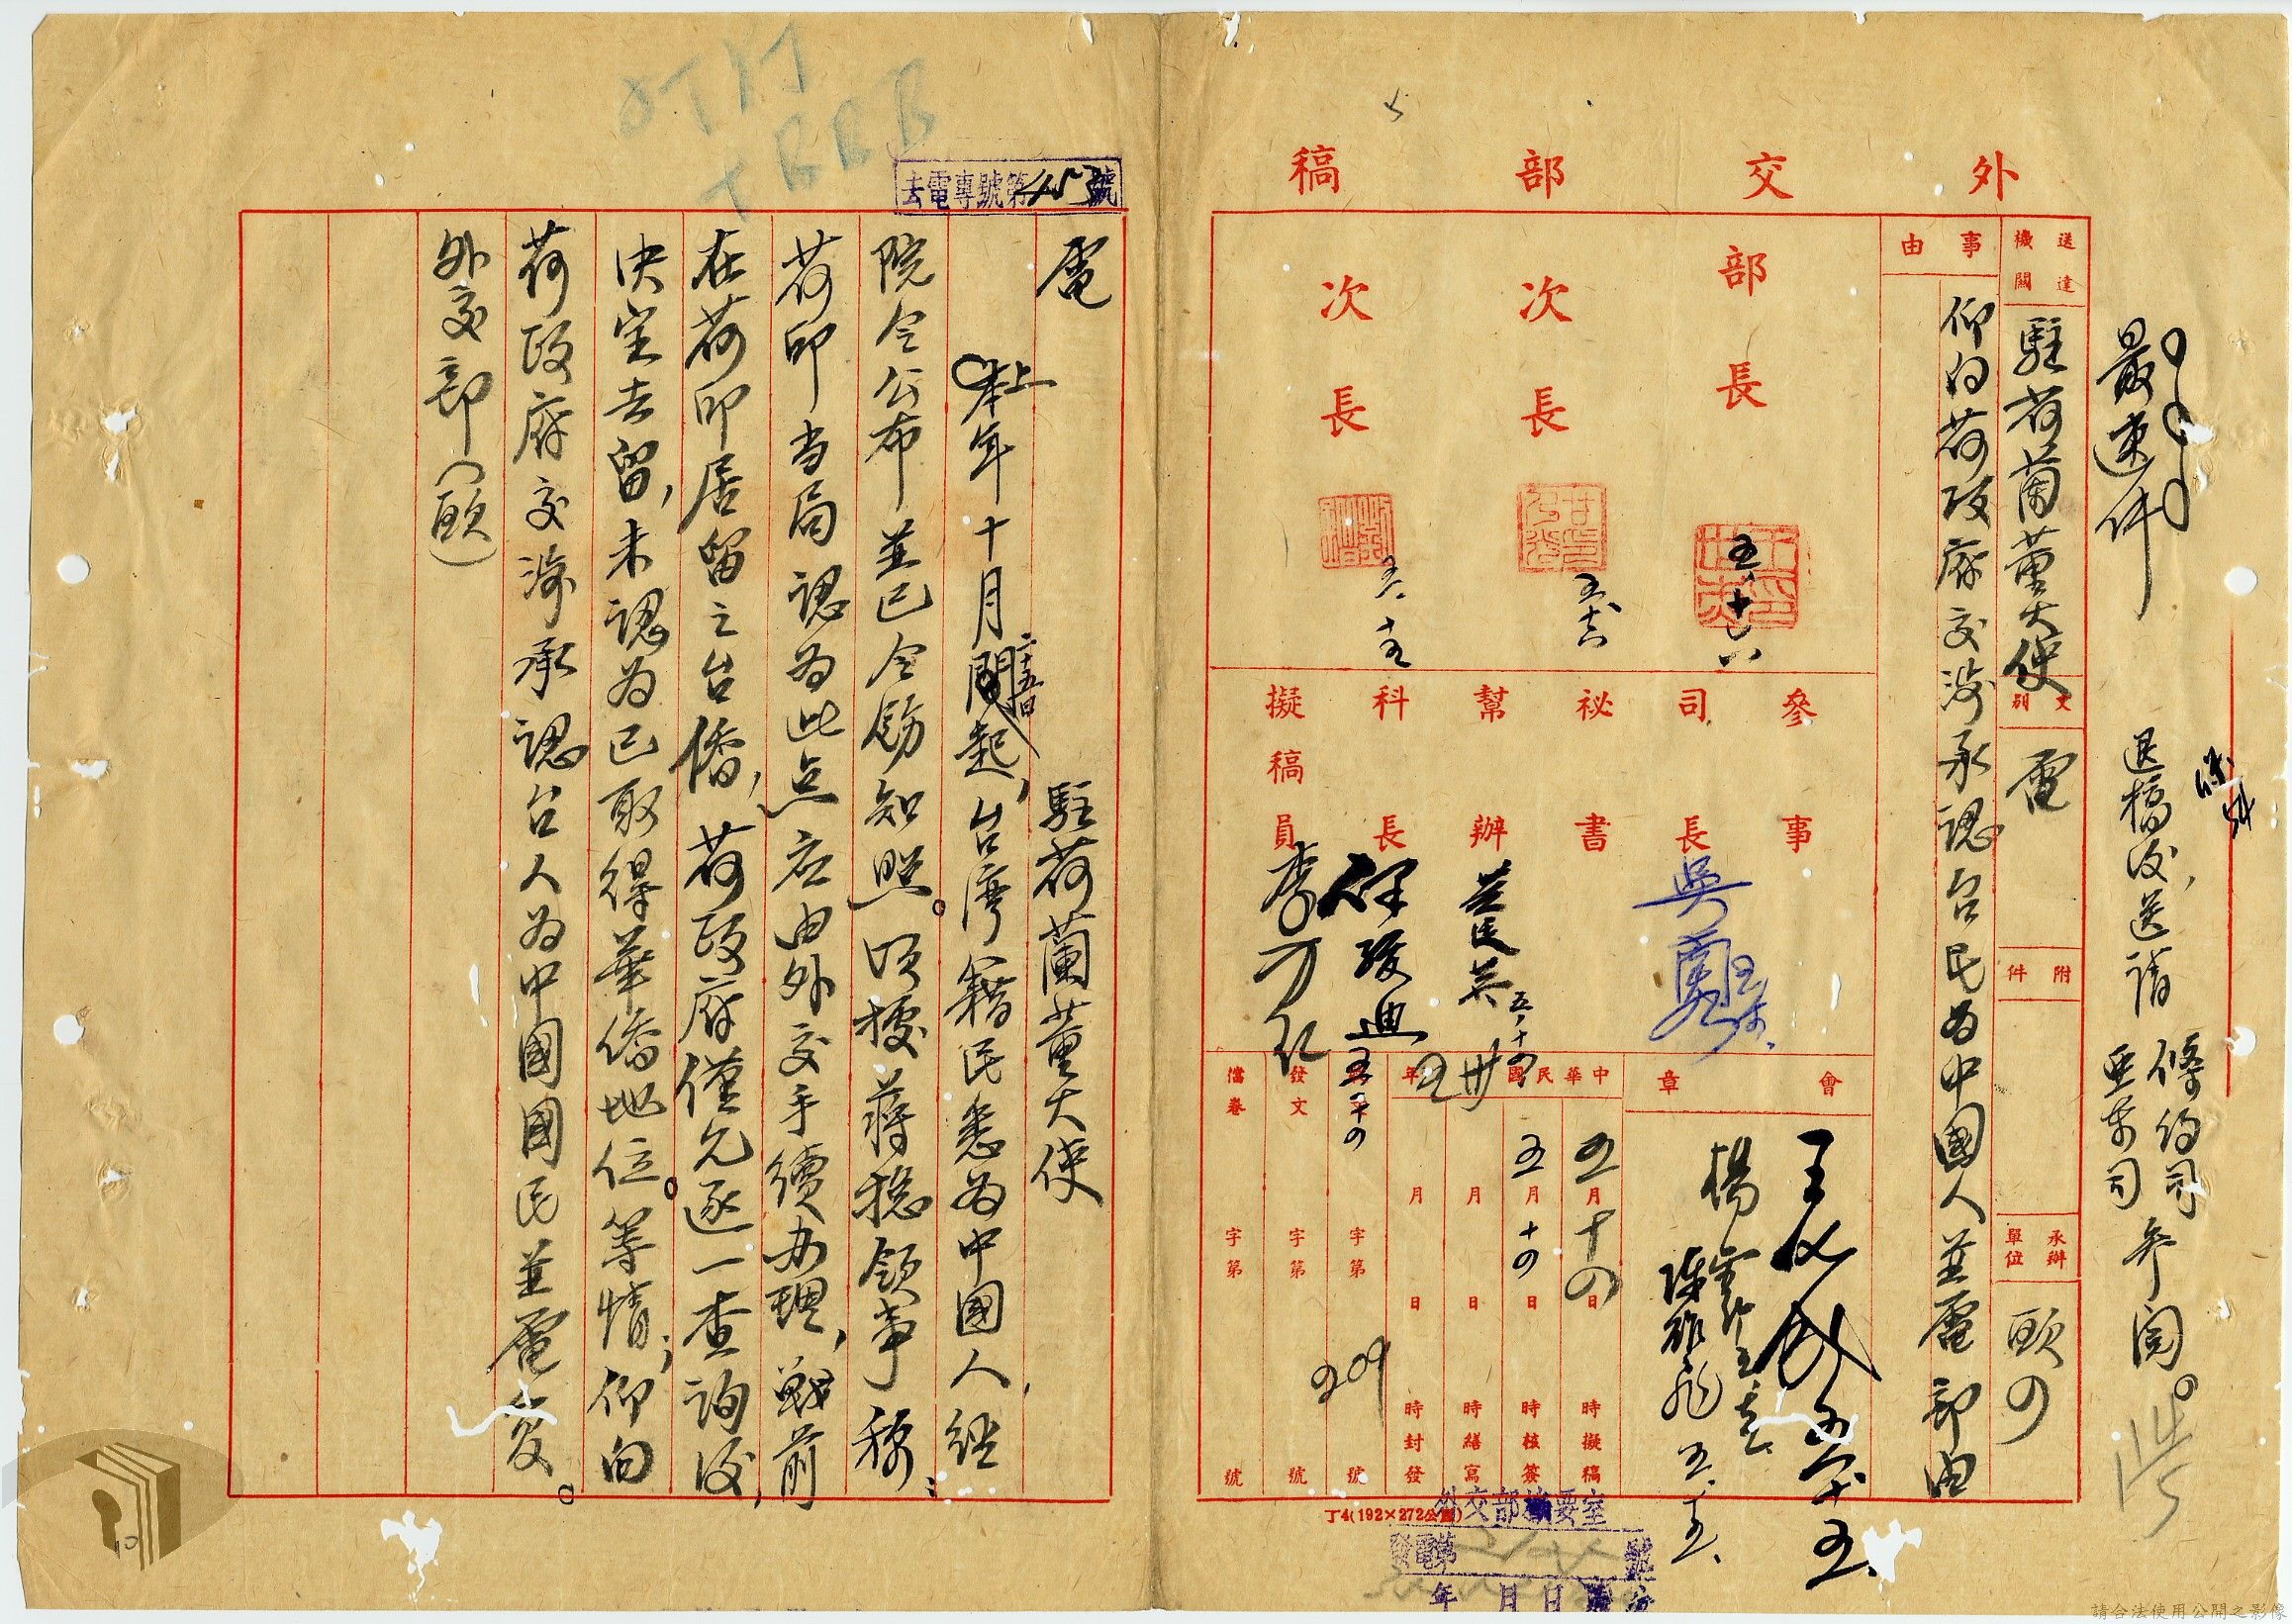 外交部稿
最速件
退稿後,送請
條約司
亞東司
參閱。
送達機關
駐荷蘭董大使
文別
電
附件
承辦單位
歐四
事由
仰向荷政府交涉承認台民為中國人並電部由
部長
次長
次長
五、十六
五、十五
參事
司長
祕書
幫辦
科長
擬稿員
吳
李
會章
楊
五、十五
中華民國
年
卅五
五月十四日
時擬稿
五月十四日
時核簽
月
日
時繕寫
月
日
時封發
字第
號
發文
字第
號
檔卷
字第
號
209
丁4(192×272公厘)
外交部機要室
發電第
號
年
月
日
去電專號第453號
電
駐荷蘭董大使
上年十月二十五日起,台灣籍民悉為中國人,經
院令公布並已令飭知照。頃據蔣總領事稱:
荷印当局認為此点应由外交手續办理,戰前
在荷印居留之台僑,荷政府僅允逐一查詢後,
決定去留,未認為已取得華僑地位。等情,仰向
荷政府交涉承認台人為中國國民並電复。
外交部(歐)
請合法使用公開之影像